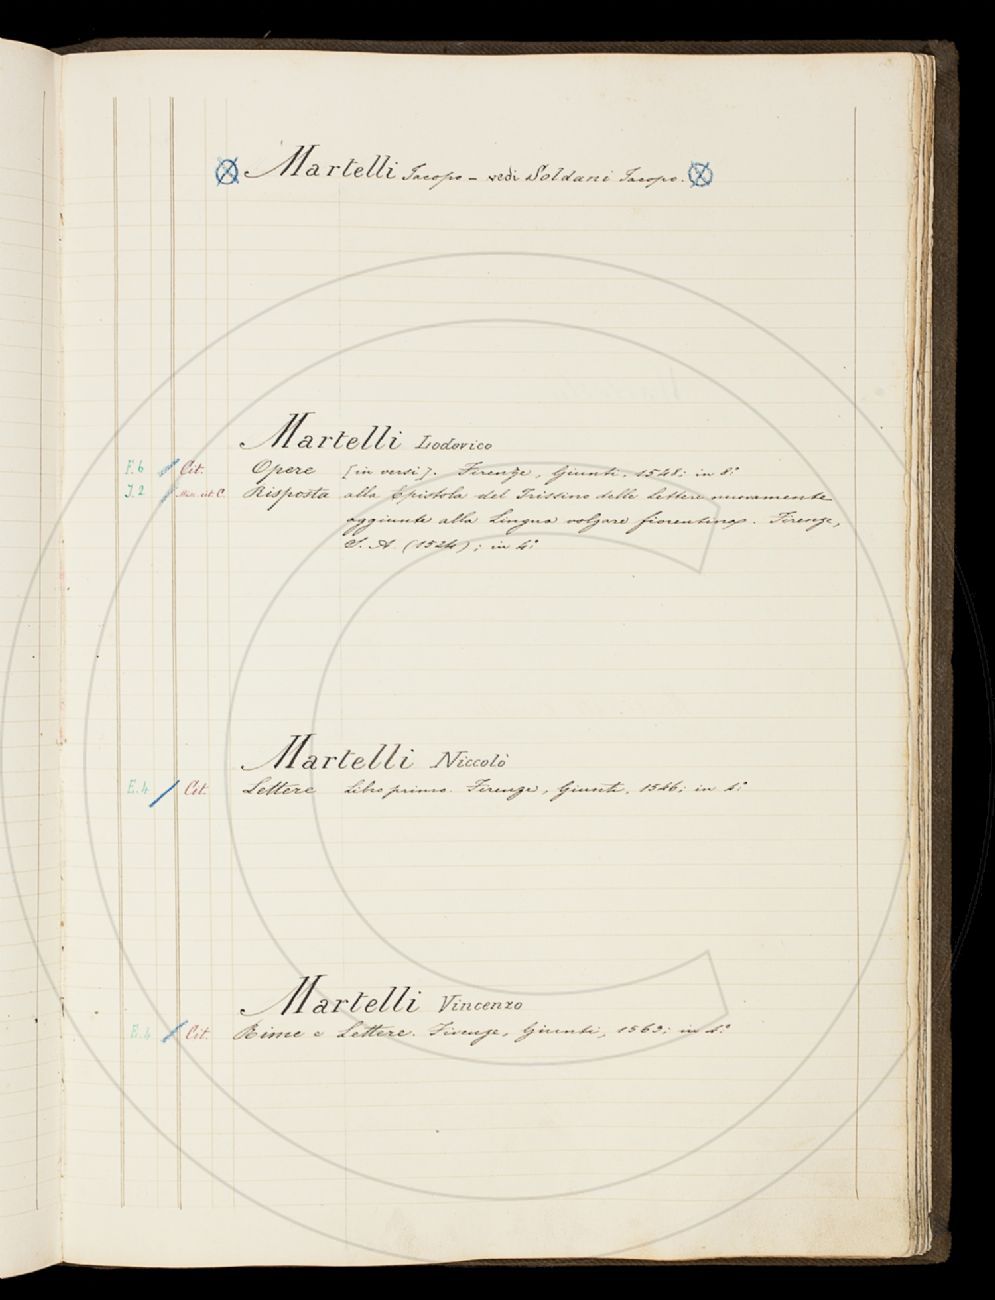 Martelli Jacopo - vedi Soldani Jacopo.
Martelli Lodovico
F. 6 Cit. Opere [in versi]. Firenze, Giunti, 1548; in 8.°
J. 2 cit. C. Risposta alla Epistola del Trissino delle Lettere nuovamente
aggiunte alla Lingua volgare fiorentina. Firenze,
S. A. (1524); in 4.°
Martelli Niccolò
E. 4. Cit. Lettere Libro primo. Firenze, Giunti, 1546; in 4.°
Martelli Vincenzo
E. 4 Cit. Rime e Lettere. Firenze, Giunti, 1563; in 4.°